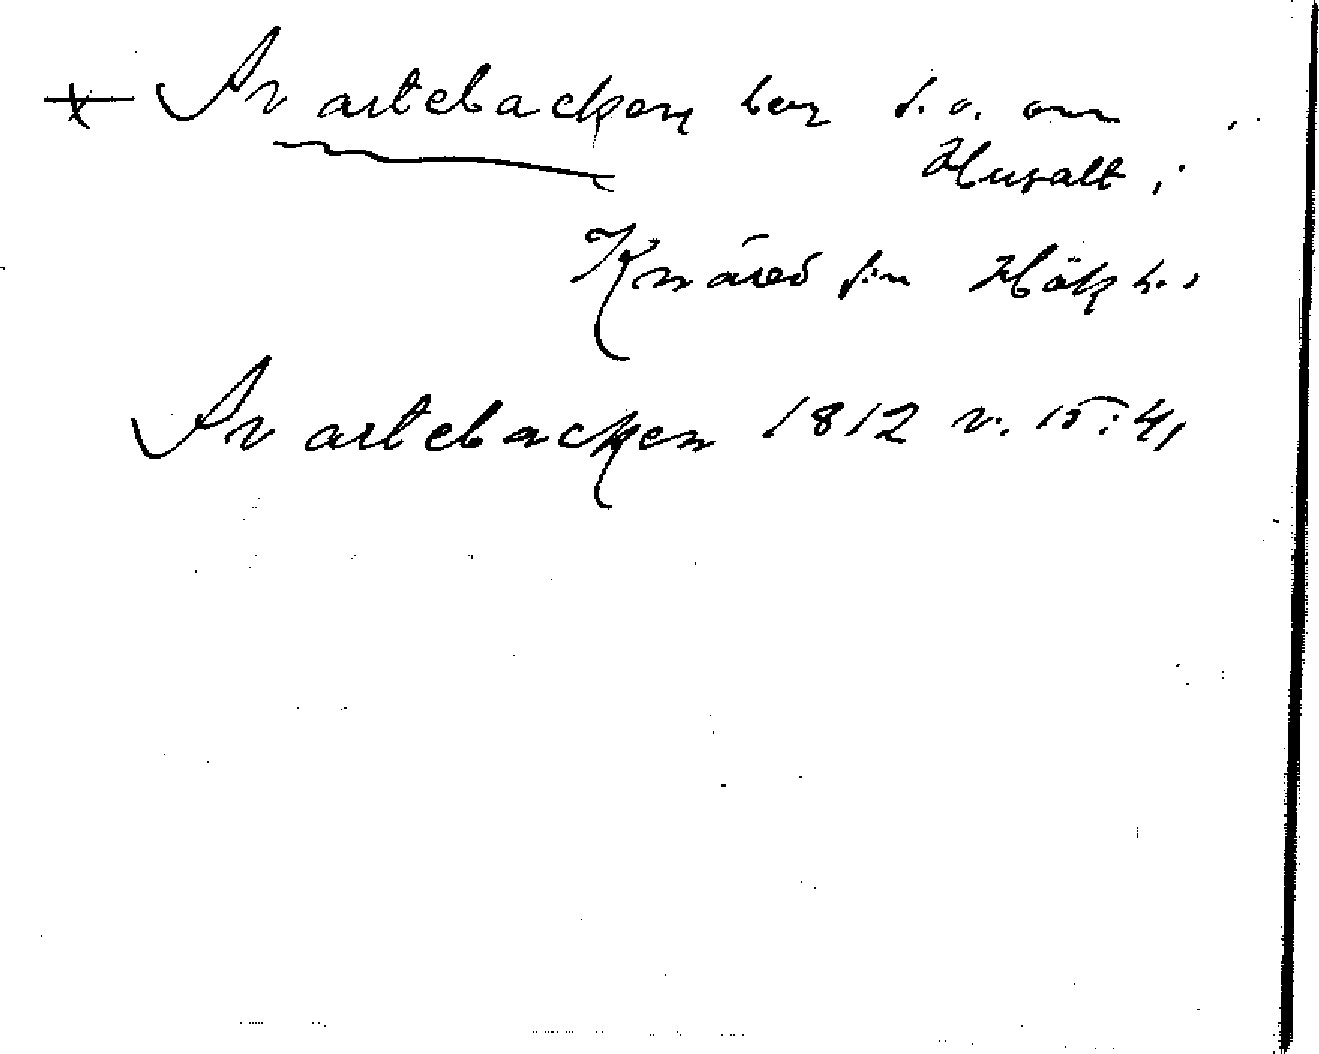 + Svartebacken ber s.o. om
Husalt i
Knäred sn Hökh.
Svartebacken 1812 v. 15:4,